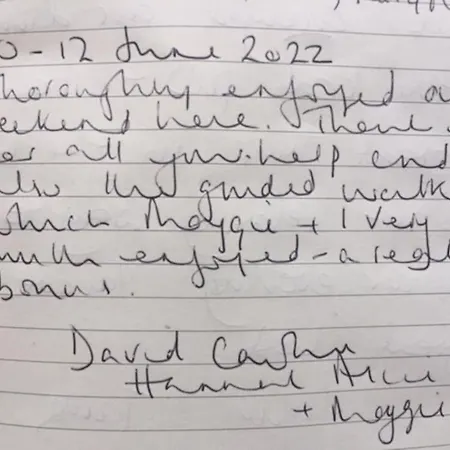 0-12 June 2022
horoughly enjoyed o
eekend here. Thank
or all your help and
lso the guided walk
which Maggie + I very
much enjoyed - a real
bonus.
David
Hannah
+ Maggie